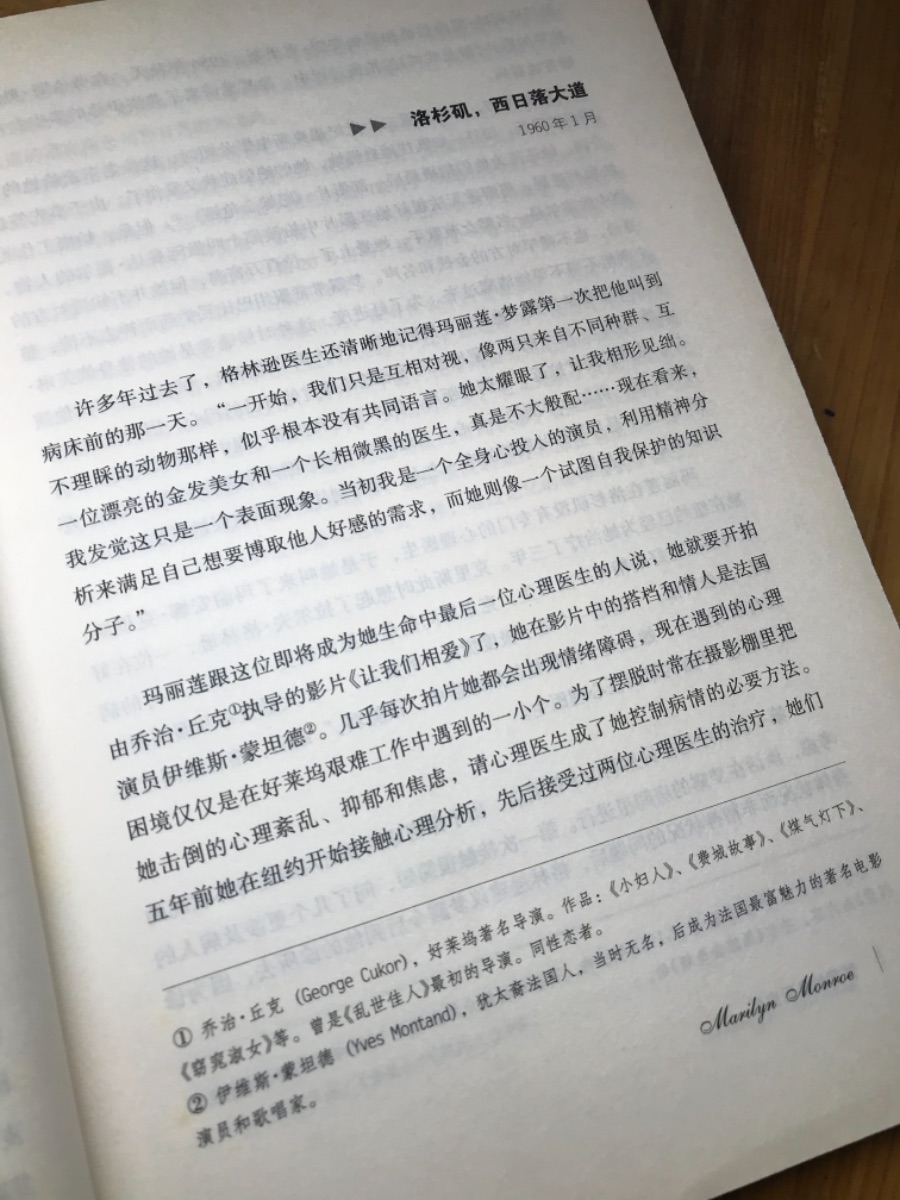 ▶▶ 洛杉矶，西日落大道
1960年1月
许多年过去了，格林逊医生还清晰地记得玛丽莲·梦露第一次把他叫到
病床前的那一天。“一开始，我们只是互相对视，像两只来自不同种群、互
不理睬的动物那样，似乎根本没有共同语言。她太耀眼了，让我相形见绌。
一位漂亮的金发美女和一个长相微黑的医生，真是不大般配……现在看来，
我发觉这只是一个表面现象。当初我是一个全身心投入的演员，利用精神分
析来满足自己想要博取他人好感的需求，而她则像一个试图自我保护的知识
分子。”
玛丽莲跟这位即将成为她生命中最后一位心理医生的人说，她就要开拍
由乔治·丘克①执导的影片《让我们相爱》了，她在影片中的搭裆和情人是法国
演员伊维斯·蒙坦德②。几乎每次拍片她都会出现情绪障碍，现在遇到的心理
困境仅仅是在好莱坞艰难工作中遇到的一小个。为了摆脱时常在摄影棚里把
她击倒的心理紊乱、抑郁和焦虑，请心理医生成了她控制病情的必要方法。
五年前她在纽约开始接触心理分析，先后接受过两位心理医生的治疗，她们
① 乔治·丘克（George Cukor），好莱坞著名导演。作品：《小妇人》、《费城故事》、《煤气灯下》、
《窈窕淑女》等。曾是《乱世佳人》最初的导演。同性恋者。
② 伊维斯·蒙坦德（Yves Montand），犹太裔法国人，当时无名，后成为法国最富魅力的著名电影
演员和歌唱家。
Marilyn Monroe